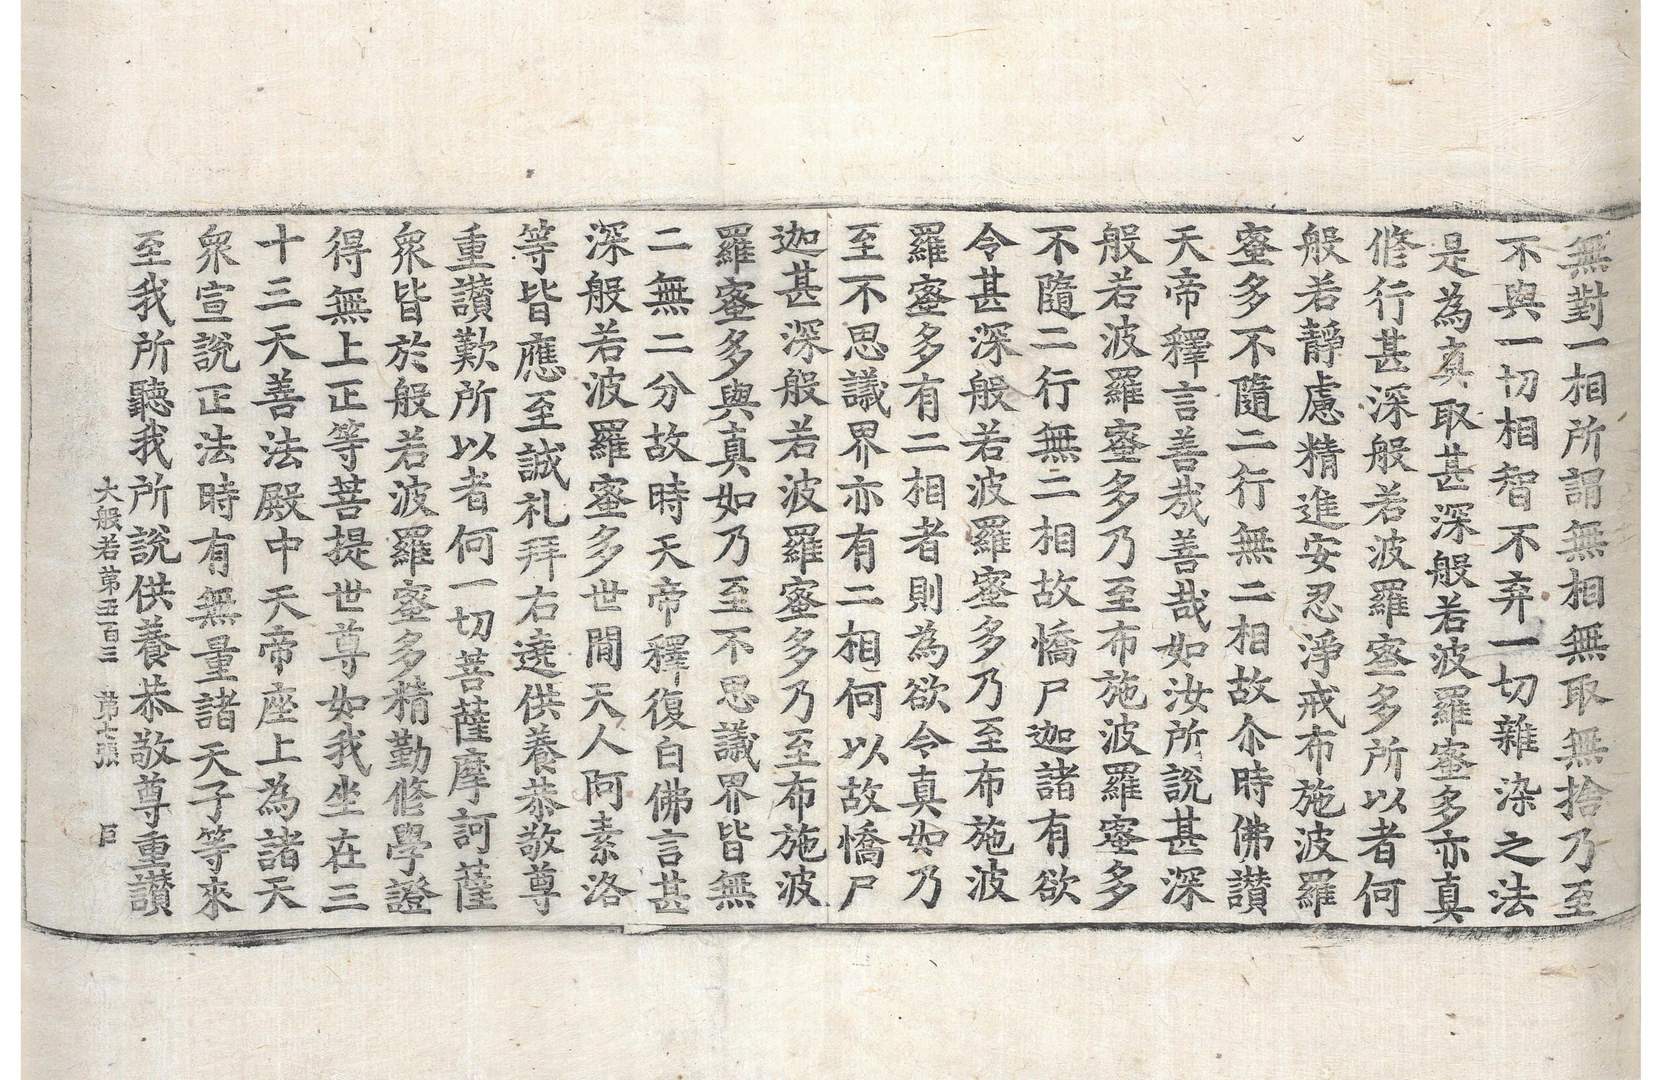 無對一相所謂無相無取無捨乃至
不與一切相智不弃一切雜染之法
是為真取甚深般若波羅蜜多亦真
俻行甚深般若波羅蜜多所以者何
般若靜慮精進安忍淨戒布施波羅
蜜多不隨二行無二相故尒時佛讃
天帝釋言善哉善哉如汝所說甚深
般若波羅蜜多乃至布施波羅蜜多
不隨二行無二相故憍尸迦諸有欲
令甚深般若波羅蜜多乃至布施波
羅蜜多有二相者則為欲令真如乃
至不思議界亦有二相何以故憍尸
迦甚深般若波羅蜜多乃至布施波
羅蜜多與真如乃至不思議界皆無
二無二分故時天帝釋復白佛言甚
深般若波羅蜜多世間天人阿素洛
等皆應至誠礼拜右遶供養恭敬尊
重讃歎所以者何一切菩薩摩訶薩
衆皆於般若波羅蜜多精勤俻學證
得無上正等菩提世尊如我坐在三
十三天善法殿中天帝座上為諸天
衆宣說正法時有無量諸天子等來
至我所聽我所說供養恭敬尊重讃
大般若第五百三 第七張 巨